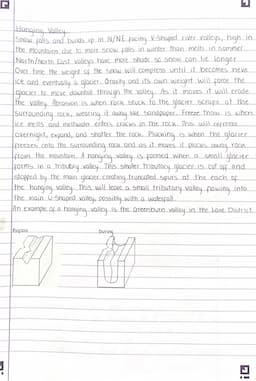 Hanging Valley
Snow falls and builds up in N/NE facing V-Shaped river valleys, high in
the mountains due to more snow falls in winter than melts in summer.
North/North East valleys have more shade so snow can lie longer.
Over time the weight of the snow will compress until it becomes neve
ice and eventually a glacier. Gravity and its own weight will force the
glacier to move downhill through the valley. As it moves it will erode
the valley. Abrasion is when rock stuck to the glacier scrapes at the
surrounding rock, wearing it away like sandpaper. Freeze thaw is when
ice melts and meltwater enters cracks in the rock. This will refreeze
overnight, expand, and shatter the rock. Plucking is when the glacier
freezes onto the surrounding rock and as it moves it plucks away rock
from the mountain. A hanging valley is formed when a small glacier
forms in a tributary valley. This smaller tributary glacier is cut off and
stopped by the main glacier creating truncated spurs at the each of
the hanging valley. This will leave a small tributary valley flowing into
the main U-Shaped valley, possibly with a waterfall.
An example of a hanging valley is the Greenburn valley in the Lake District.
Before
During